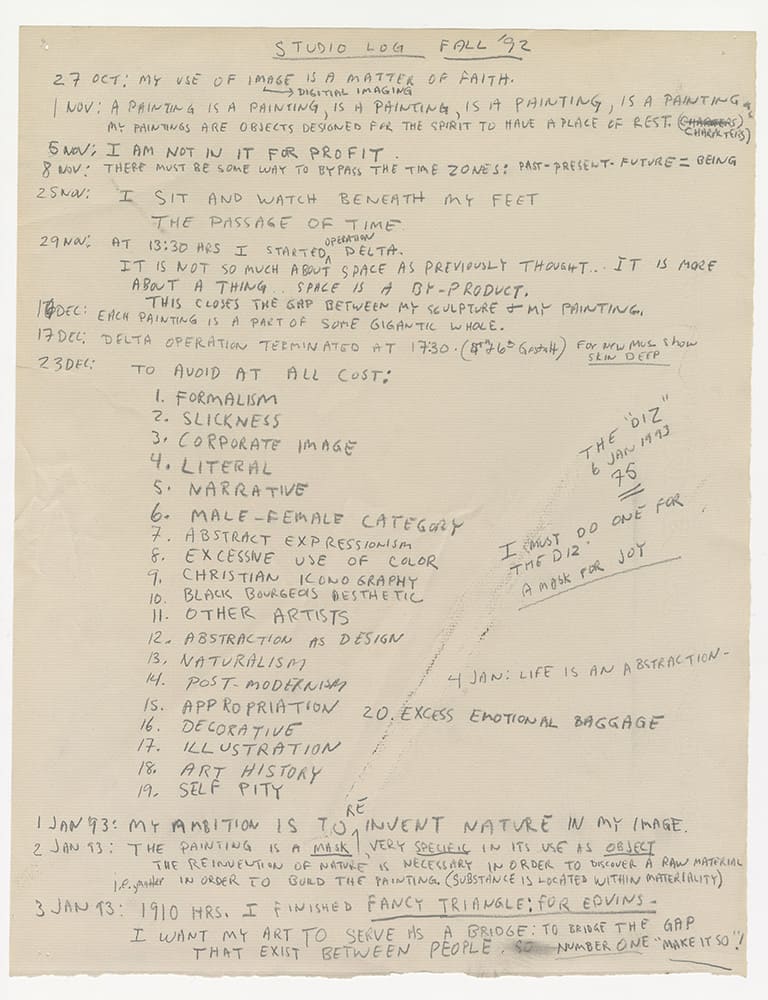 STUDIO LOG FALL '92
27 OCT: MY USE OF IMAGE IS A MATTER OF FAITH.
→ DIGITIAL IMAGING
1 NOV: A PAINTING IS A PAINTING, IS A PAINTING, IS A PAINTING, IS A PAINTING
MY PAINTINGS ARE OBJECTS DESIGNED FOR THE SPIRIT TO HAVE A PLACE OF REST.
CHARACTERS)
5 NOV: I AM NOT IN IT FOR PROFIT.
8 NOV: THERE MUST BE SOME WAY TO BYPASS THE TIME ZONES: PAST-PRESENT-FUTURE = BEING
25 NOV: I SIT AND WATCH BENEATH MY FEET
THE PASSAGE OF TIME
29 NOV: AT 13:30 HRS I STARTED OPERATION DELTA.
IT IS NOT SO MUCH ABOUT SPACE AS PREVIOUSLY THOUGHT... IT IS MORE
ABOUT A THING.. SPACE IS A BY-PRODUCT.
THIS CLOSES THE GAP BETWEEN MY SCULPTURE & MY PAINTING.
DEC: EACH PAINTING IS A PART OF SOME GIGANTIC WHOLE.
17 DEC: DELTA OPERATION TERMINATED AT 17:30. FOR NEW MUS. SHOW
SKIN DEEP
23 DEC: TO AVOID AT ALL COST:
1. FORMALISM
2. SLICKNESS
3. CORPORATE IMAGE
4. LITERAL
5. NARRATIVE
6. MALE-FEMALE CATEGORY
7. ABSTRACT EXPRESSIONISM
8. EXCESSIVE USE OF COLOR
9. CHRISTIAN ICONOGRAPHY
10. BLACK BOURGEOIS AESTHETIC
11. OTHER ARTISTS
12. ABSTRACTION AS DESIGN
13. NATURALISM
14. POST-MODERNISM
15. APPROPRIATION
16. DECORATIVE
17. ILLUSTRATION
18. ART HISTORY
19. SELF PITY
20. EXCESS EMOTIONAL BAGGAGE
THE "DIZ"
6 JAN 1993
75
I MUST DO ONE FOR
THE DIZ.
A MASK FOR JOY
4 JAN: LIFE IS AN ABSTRACTION-
1 JAN '93: MY AMBITION IS TO RE INVENT NATURE IN MY IMAGE.
2 JAN 93: THE PAINTING IS A MASK, VERY SPECIFIC IN ITS USE AS OBJECT
THE REINVENTION OF NATURE IS NECESSARY IN ORDER TO DISCOVER A RAW MATERIAL
i.e. matter IN ORDER TO BUILD THE PAINTING. (SUBSTANCE IS LOCATED WITHIN MATERIALITY)
3 JAN 93: 1910 HRS. I FINISHED FANCY TRIANGLE: FOR EDVINS-
I WANT MY ART TO SERVE AS A BRIDGE: TO BRIDGE THE GAP
THAT EXIST BETWEEN PEOPLE. SO NUMBER ONE "MAKE IT SO"!